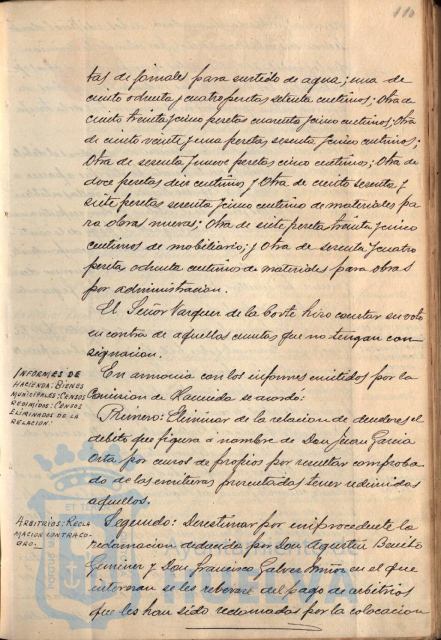 110
tas de jornales para surtido de agua; una de
ciento ochenta y cuatro pesetas setenta centimos; Otra de
ciento treinta y cinco pesetas cuarenta y cinco centimos; Otra
de ciento veinte y una pesetas sesenta y cinco centimos;
Otra de sesenta y nueve pesetas cinco centimos; Otra de
doce pesetas diez centimos y Otra de ciento sesenta y
siete pesetas sesenta y cinco centimos de materiales pa
ra obras nuevas; Otra de siete pesetas treinta y cinco
centimos de mobiliario; y Otra de sesenta y cuatro
pesetas ochenta centimos de materiales para obras
por administracion.
El Señor Vazquez de la Corte hizo constar su voto
en contra de aquellas cuentas que no tengan con
signacion.
INFORMES DE
HACIENDA: BIENES
MUNICIPALES: CENSOS
REDIMIDOS: CENSOS
ELIMINADOS DE LA
RELACION:
En armonia con los informes emitidos por la
Comision de Hacienda se acordo:
Primero: Eliminar de la relacion de deudores el
debito que figura a nombre de Don Juan Garcia
Orta por censos de propios por resultar comproba
do de las escrituras presentadas tener redimidos
aquellos.
ARBITRIOS: RECLA
MACION CONTRA CO-
BRO:
Segundo: Desestimar por improcedente la
reclamacion deducida por Don Agustin Benito
Gimenez y Don Francisco Galvez Muñoz en el que
interesan se les relevare del pago de arbitrios
que les han sido reclamados por la colocacion